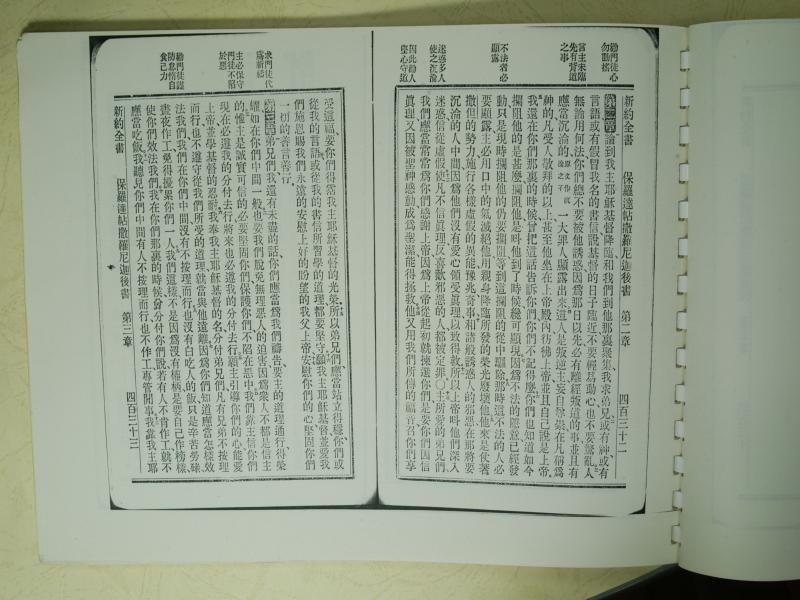 新約全書 保羅達帖撒羅尼迦後書 第二章 四百三十二
勸門徒心
勿動搖
言主未臨
先有背道
之事
不法者必
顯露
迷惑多人
使之沉淪
因此勸人
堅心守道
第二章 論到我主耶穌基督降臨和我們到他那裏聚集我求弟兄或有神或有
言語或有假冒我名的書信說基督的日子臨近不要輕易動心也不要驚亂人
無論用何法你們總不要被他誘惑因爲那日以先必有離經叛道的事並且有
應當沉淪的 一大罪人顯露出來這人是叛逆主妄自尊崇在凡稱爲
神的凡受人敬拜的以上甚至他坐在上帝殿內彷彿上帝並且自己說是上帝
我還在你們那裏的時候曾把這話告訴你們你們不記得麼你們也知道如今
攔阻他的是甚麼攔阻他是呌他到了時候纔可顯現因爲不法的隱意已經發
動只是現時攔阻他的仍要攔阻等到這攔阻的從中驅除那時這不法的人必
要顯露主必用口中的氣滅絕他用親身降臨所發的榮光廢壞他他來是仗著
撒但的勢力施行各樣虛假的異能豫兆奇事和諸般誘惑人的邪惡在那將要
沉淪的人中間因爲他們沒有愛心領受眞理以致得救所以上帝呌他們深入
迷惑信從虛假使凡不信眞理反喜歡邪惡的人都被定罪○主所愛的弟兄們
我們應當常常爲你們感謝上帝因爲上帝從起初就揀選你們是要你們因信
眞理又因被聖神感動成爲聖潔能得拯救他又用我們所傳的福音召你們享
求門徒代
爲祈禱
主必保守
門徒不陷
於惡
勸門徒謹
防怠惰自
食己力
受這福要你們得當我主耶穌基督的光榮所以弟兄們應當站立得穩你們或
從我的言語或從我的書信所習學的道理都要堅守願我主耶穌基督並愛我
們施恩賜我們永遠的安慰上好的盼望的我父上帝安慰你們的心堅固你們
一切的善言善行
第三章 弟兄們我還有未盡的話你們應當爲我們禱告要主的道理通行得榮
耀如在你們中間一般也要我們脫免無理惡人的迫害因爲衆人不都是信主
的惟主是誠實可信的必要堅固你們保護你們不陷在惡中我們靠主信你們
現在必遵我的分付去行將來也必遵我的分付去行願主引導你們的心能愛
上帝並學基督的忍耐我奉我主耶穌基督的名分付弟兄們凡有兄弟不按理
而行也不遵守從我們所受的道理就當與他遠離因爲你們知道應當怎樣效
法我們我們在你們中間沒有不按理而行也沒有白吃人的飯只是辛苦勞碌
晝夜作工免得擾累你們一人我們這樣不是因爲沒有權柄是要自己作榜樣
使你們效法我們我在你們那裏的時候曾分付你們說若有人不肯作工就不
應當吃飯我聽見你們中間有人不按理而行也不作工專管閒事我靠我主耶
新約全書 保羅達帖撒羅尼迦後書 第三章 四百三十三